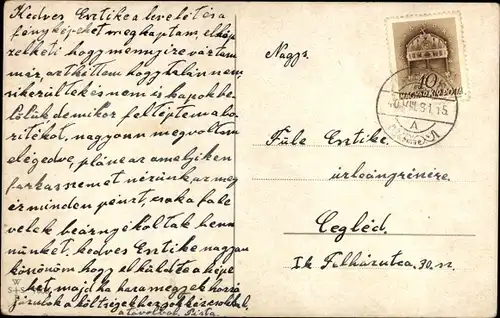 Kedves Esztike a levelét és a
fényképeket megkaptam, elkép
zelheti hogy mennyire vártam
már, azt hittem hogy talán nem
sikerültek és nem is kapok be
lőlük, de mikor felteptem a bo
rítékot, nagyon megvoltam
elégedve, pláne az amelyiken
farkasszemet nézünk, az meg
ér minden pénzt, csak a fale
velek beárnyékoltak benn
nünket. kedves Esztike nagyon
köszönöm hogy elküldte a képe
ket, majd ha haza megyek hozzá
járulok a költségekhez
a távolból Pista.
W
S+S
Nagys.
Füle Esztike.
úrleány részére.
Cegléd.
Ik Felházutca. 30. sz.
10
MAGYAR KIR. POSTA